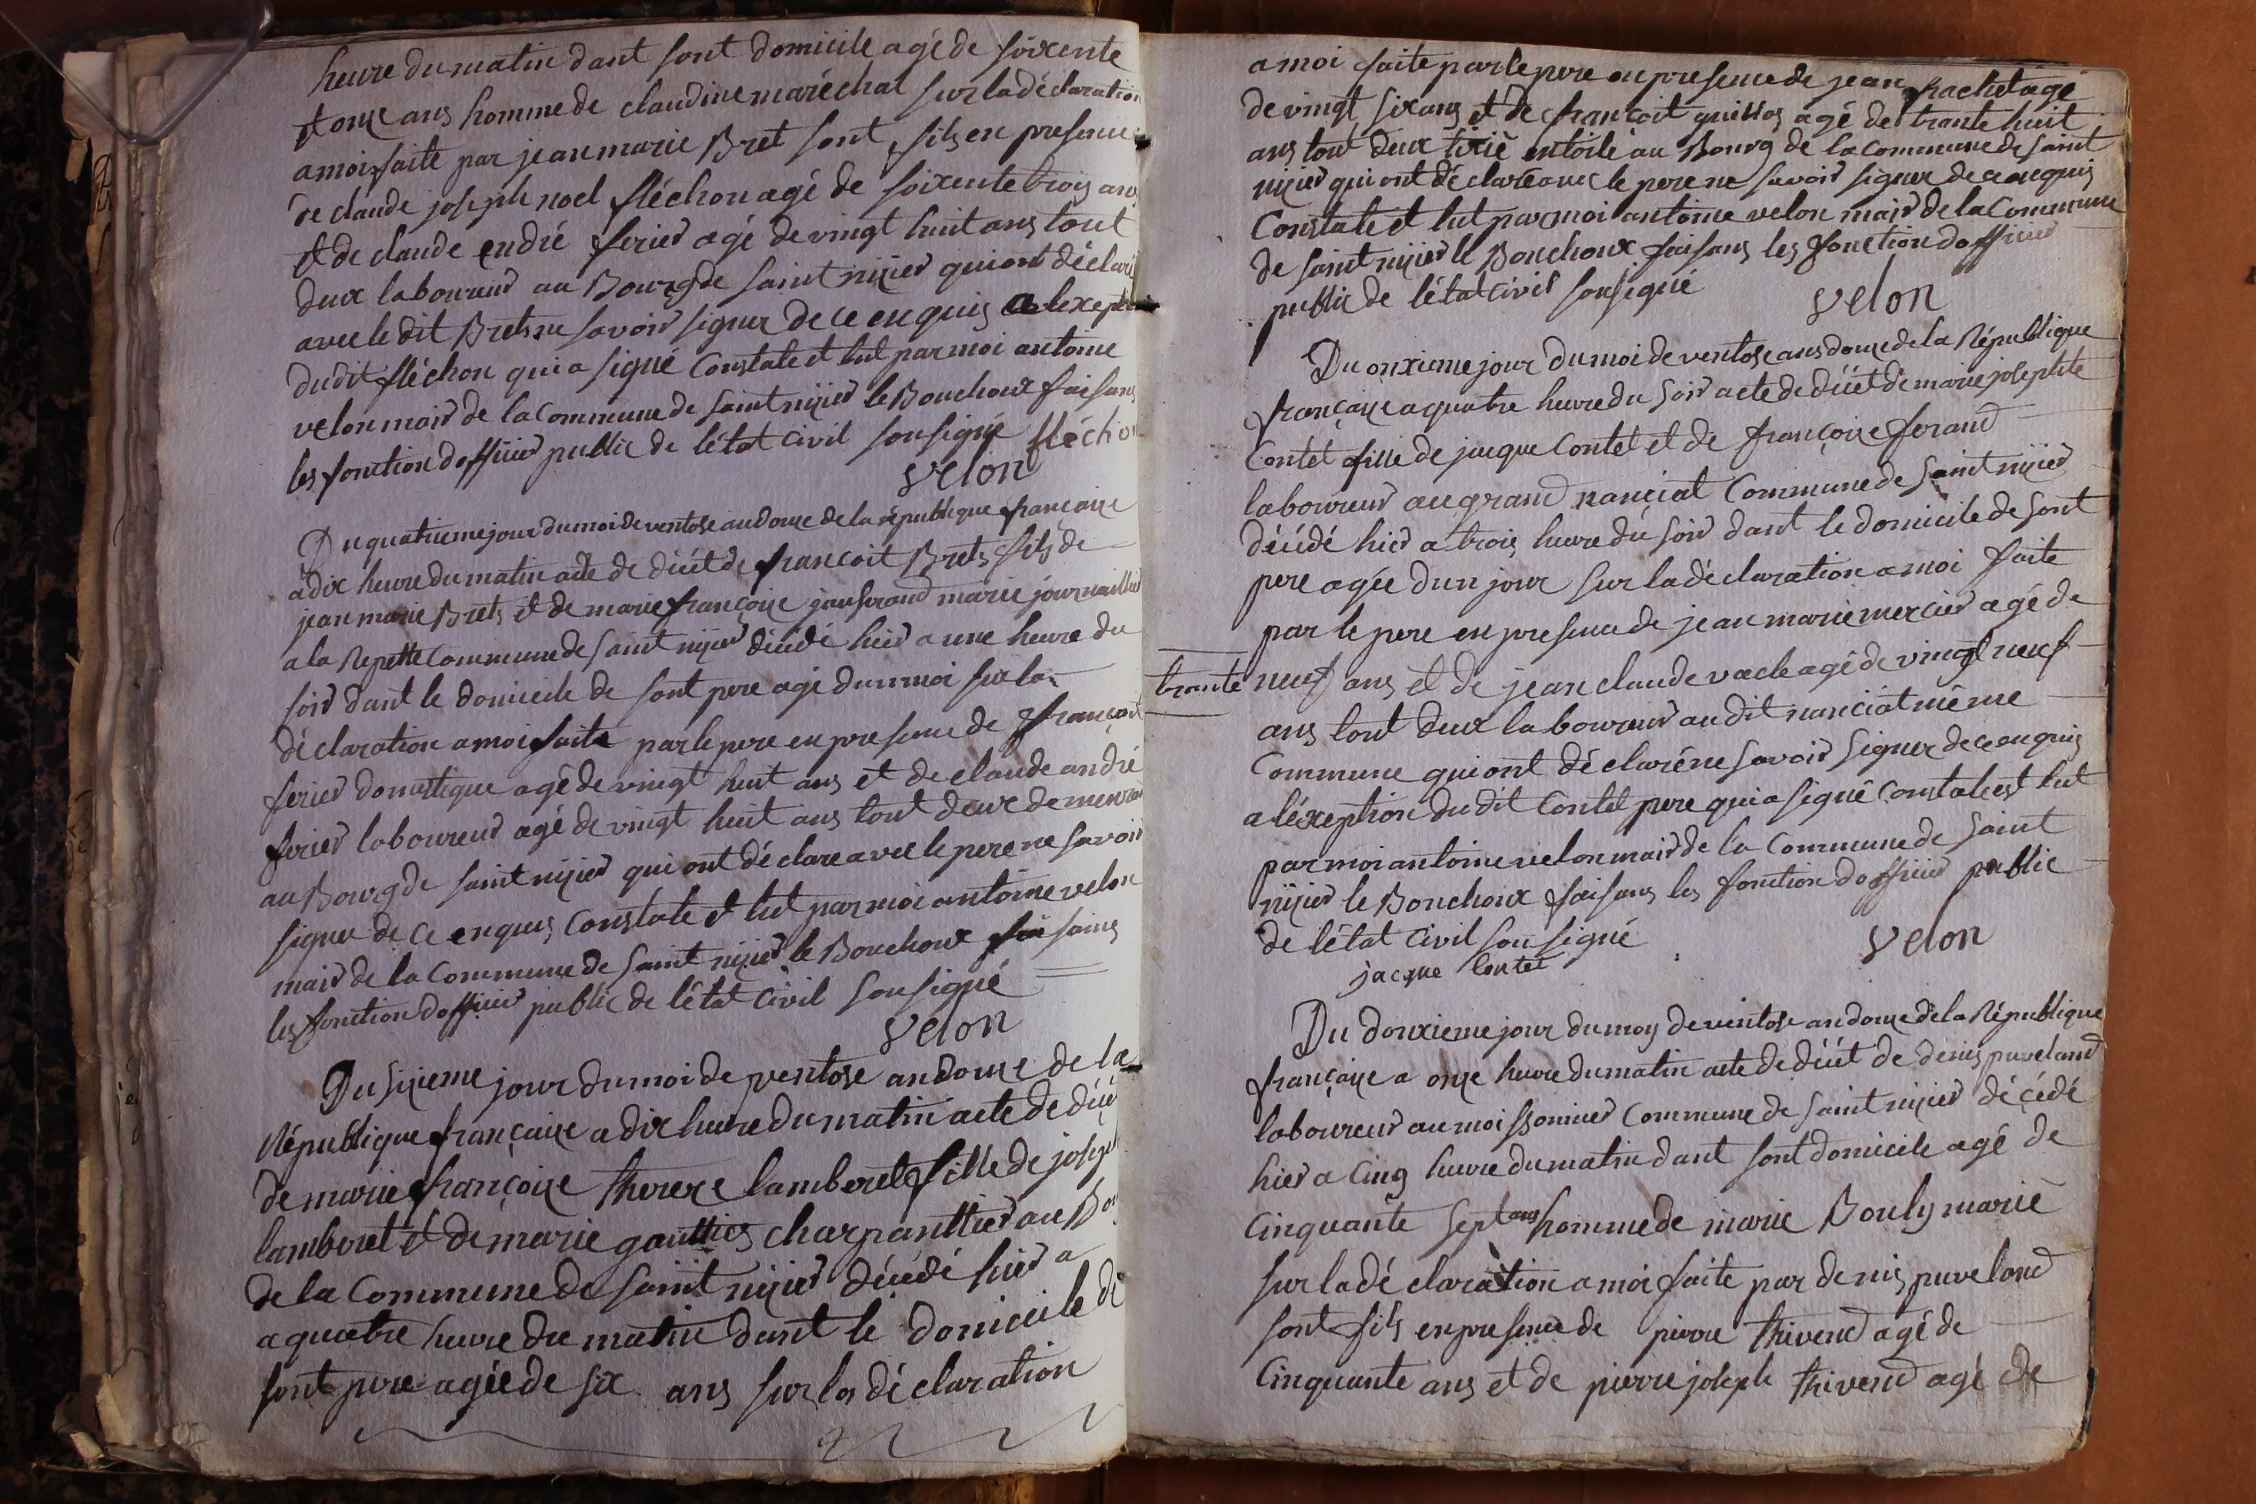 heure du matin dant sont domicile agé de soixente
et onze ans homme de claudine maréchal sur la déclaration
a moi faite par jean marie Bret sont fils en presence
de claude joseph noel fléchon agé de soixente trois ans
et de claude endré ferier agé de vingt huit ans tout
deux laboureur au Bourg de saint nizier qui ont déclaré
avec le dit Brets ne savoir signer de ce enquis a lexeption
dudit fléchon qui a signé Constate et lut par moi antoine
velon mair de la commune de saint nizier le Bouchoux faisans
les fonction dofficier public de létat civil sousigné fléchon
velon
Du quatrieme jour du moi de ventose an douze de la république françaize
a dix heure du matin acte de décét de françoit Brets fils de
jean marie Brets et de marie françoize jauserand mariée journaillier
a la Repette Commune de saint nizier décédé hier a une heure du
soir dant le domicile de sont pere agé dun moi sur la
déclaration a moi faite par le pere en presence de françoit
ferier domestique agé de vingt huit ans et de claude andré
ferier laboureur agé de vingt huit ans tout deux demeurant
au Bourg de saint nizier qui ont déclare avec le pere ne savoir
signer de ce enquis Constate et lut par moi antoine velon
mair de la Commune de saint nizier le Bouchoux faisans
les fonction dofficier public de létat Civil sousigné
velon
Du sizieme jour du moi de ventose an douze de la
République françaize a dix heure du matin acte de décét
de marie françoize thereze lamberet fille de joseph
lamberet et de marie gauttier charpanttier au Bourg
de la Commune de saint nizier décédé hier a
a quatre heure du matin dant le domicile de
sont pere agée de six ans sur la déclaration
a moi faite par le pere en presence de jean rachet agé
de vingt six ans et de françoit guillos agé de trante huit
ans tout deux tixié en toile au Bourg de la commune de saint
nizier qui ont déclaré avec le pere ne savoir signer de ce enquis
Constate et lut par moi antoine velon mair de la Commune
de saint nizier le Bouchoux faisans les fonction dofficier
public de létat civil sousigné velon
Du onzieme jour du moi de ventose ans douze de la République
françaize a quatre heure du soir acte de décét de marie josephte
Contet fille de jacque Contet et de françoize ferand
laboureur au grand nanciat Commune de saint nizier
décédé hier a trois heure du soir dant le domicile de sont
pere agée dun jour sur la déclaration a moi faite
par le pere en presence de jean marie mercier agé de
trante neuf ans et de jean claude vacle agé de vingt neuf
ans tout deux laboureur au dit nanciat même
Commune qui ont déclaré ne savoir signer de ce enquis
a léxeption du dit Contet pere qui a signé Constate et lut
par moi antoine velon mair de la Commune de saint
nizier le Bouchoux faisans les fonction dofficier public
de létat Civil sousigné velon
jacque Contet
Du douxieme jour du moy de ventose an douze de la République
françaize a onze heure du matin acte de décét de denis puveland
laboureur au moissonnier Commune de saint nizier décédé
hier a Cinq heure du matin dant sont domicile agé de
Cinquante sept ans homme de marie Bouly mariè
sur la déclaration a moi faite par denis puveland
sont fils en presence de pierre thivend agé de
Cinquante ans et de pierre joseph thivend agé de